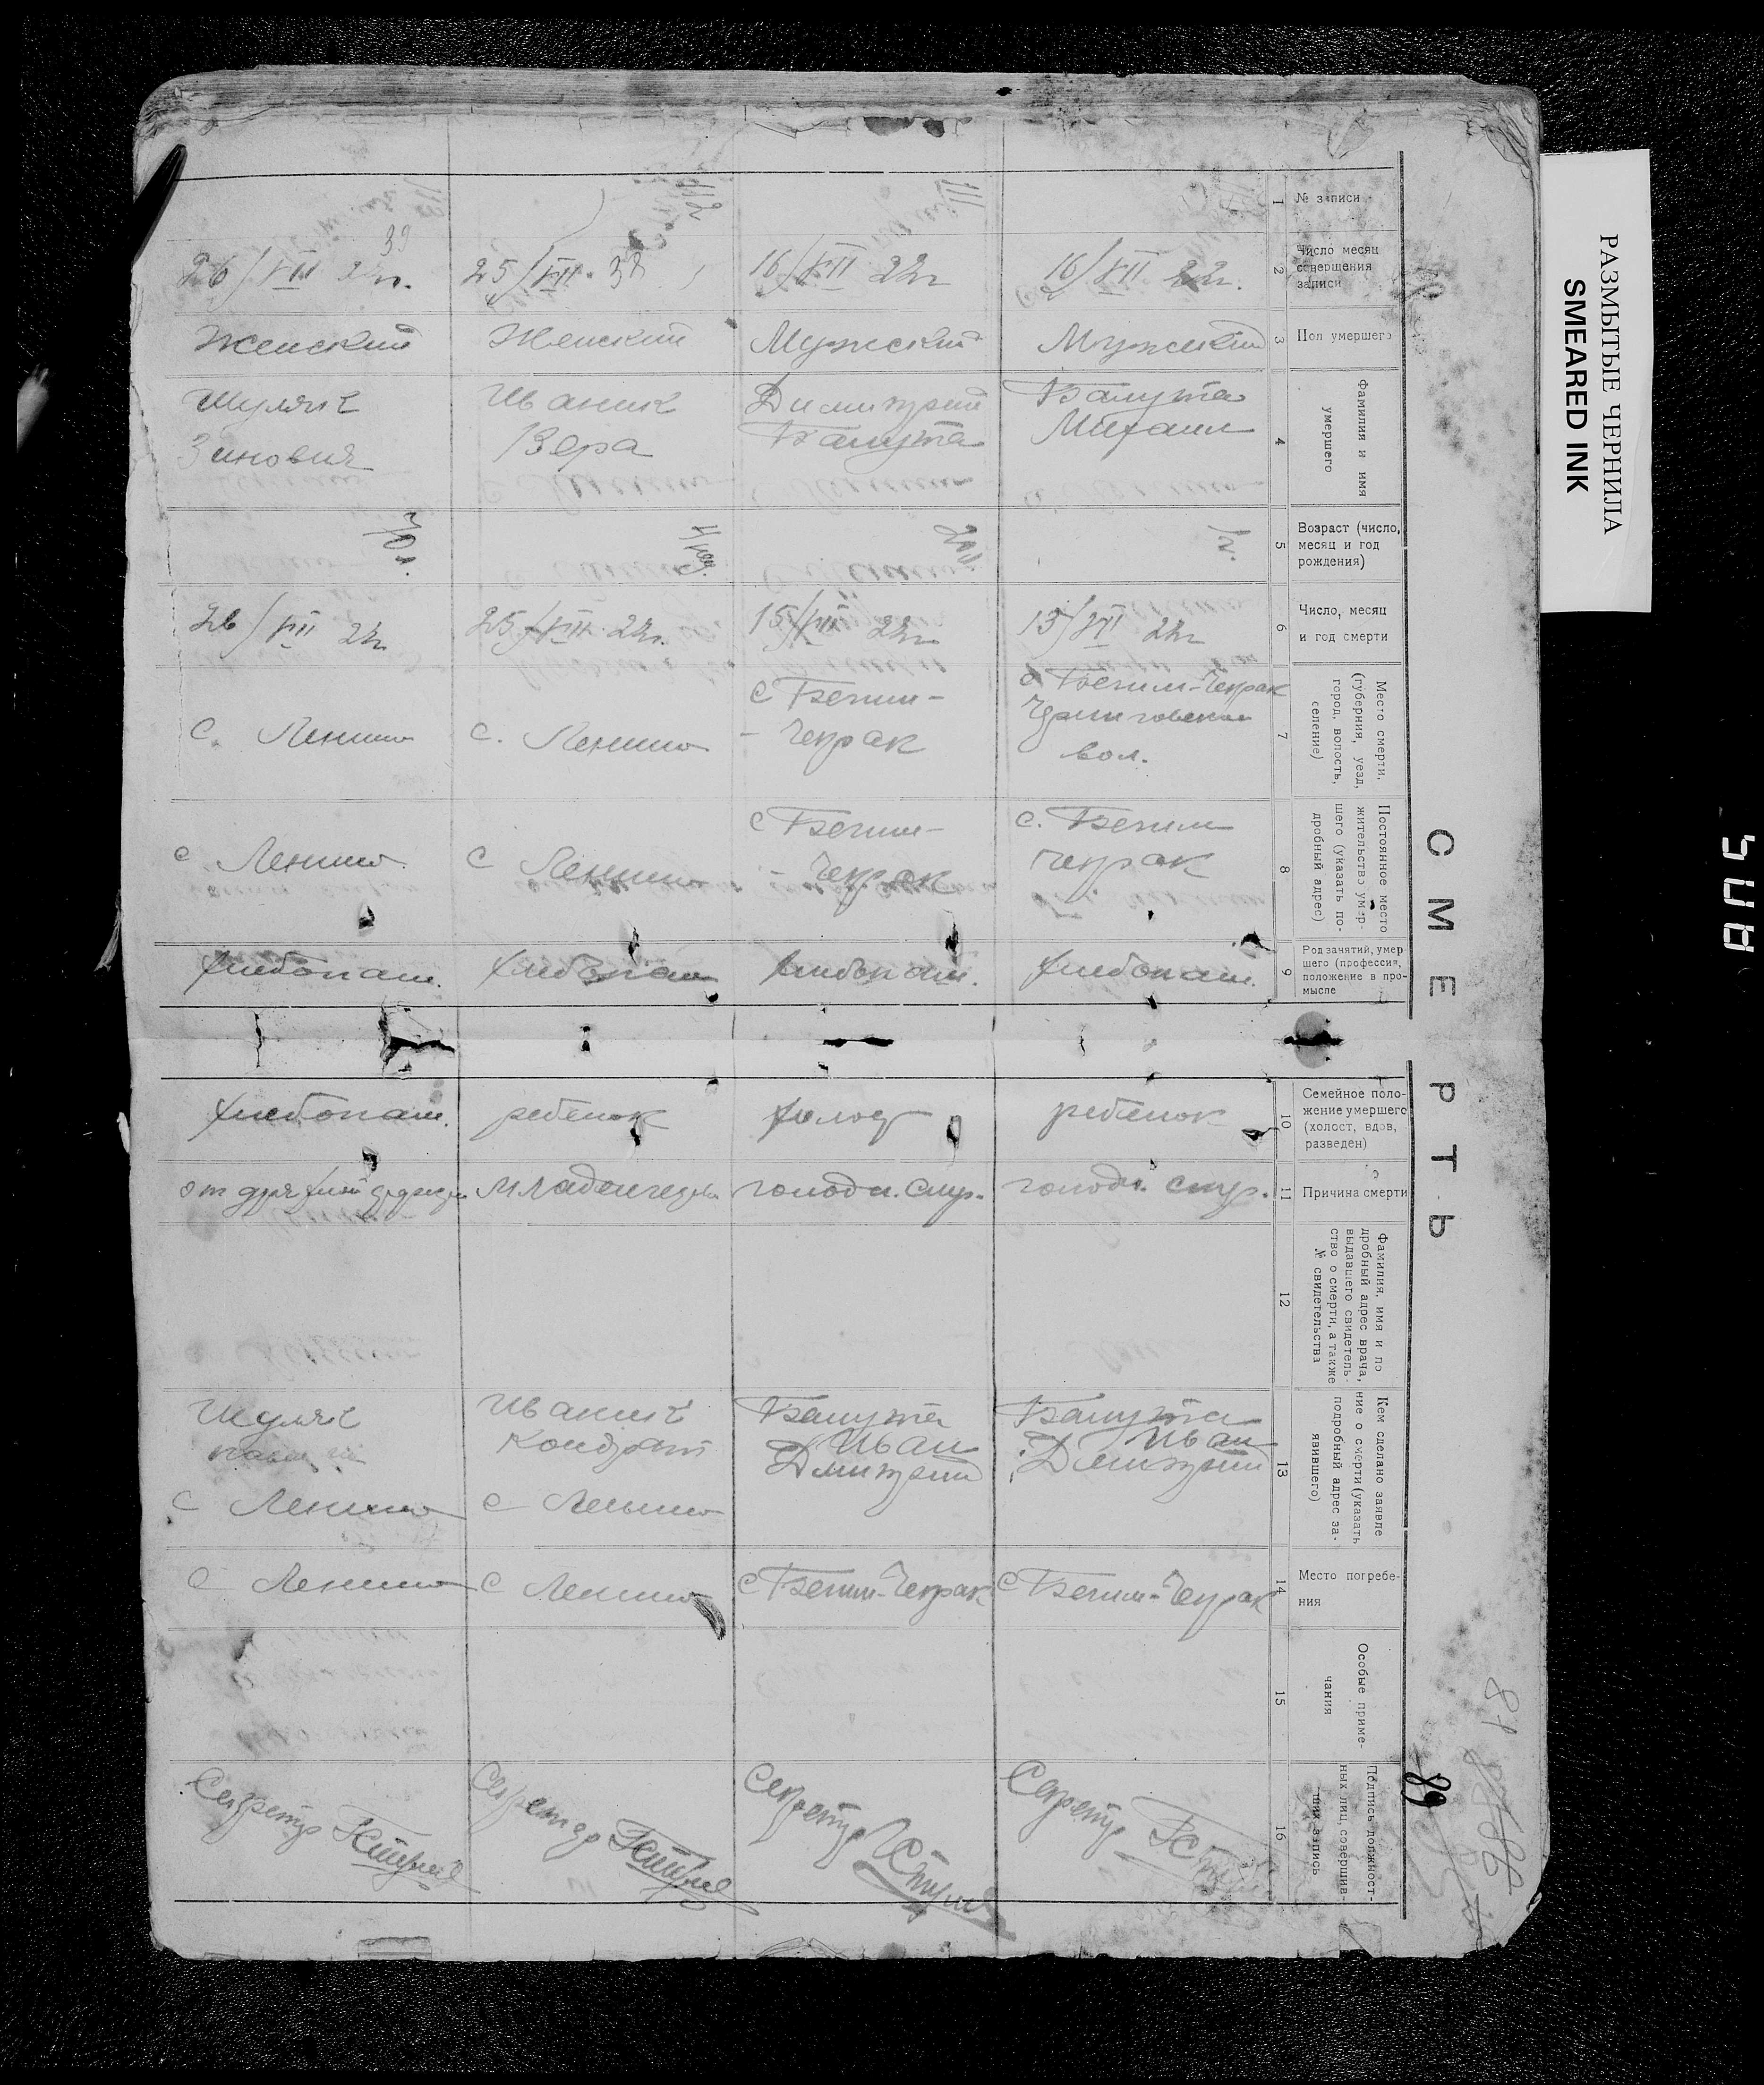 РАЗМЫТЫЕ ЧЕРНИЛА
SMEARED INK
СМЕРТЬ
1
№ записи
111
112
2
Число месяц
совершения
записи
16/VII 22г.
16/VII 22г
25/VII
26/VII
3
Пол умершего
Мужский
Мужский
Женский
Женский
4
Фамилия и имя
умершего
Бапута
Михаил
Димитрий
Бапута
Иванич
Вера
Шуляк
Зиновия
5
Возраст (число,
месяц и год
рождения)
70 л.
6
Число, месяц
и год смерти
15/VII 22г
25/VII 22г.
26/VII 22г
7
Место смерти,
(губерния, уезд,
город, волость,
селение)
с Бегим-Чекрак
вол.
с Бегим-
-Чекрак
с. Ленино
с. Ленино
8
Постоянное место
жительство умер-
шего (указать по-
дробный адрес)
с. Бегим
Чекрак
с Бегим-
-Чекрак
с Ленино
с Ленино
9
Род занятий, умер
шего (профессия,
положение в про-
мысле
хлебопаш.
хлебопаш.
хлебопаш
хлебопаш.
10
Семейное поло-
жение умершего
(холост, вдов,
разведен)
ребенок
холост
ребенок
хлебопаш.
11
Причина смерти
голодн. смер.
голодн. смер.
от
12
Фамилия, имя и по
дробный адрес врача,
выдавшего свидетель-
ство о смерти, а также
№ свидетельства
13
Кем сделано заявле
ние о смерти (указать
подробный адрес за-
явившего)
Бапута
Иван
Дмитрий
Бапута
Иван
Дмитрий
Иванич
Кондрат
с Ленино
Шуляк
с Ленино
14
Место погребе-
ния
с Бегим-Чекрак
с Бегим-Чекрак
с Ленино
с Ленино
15
Особые приме-
чания
16
Подпись должност-
ных лиц, совершив-
ших запись
Секретр
Секретр
Секретар
Секретр
81
89